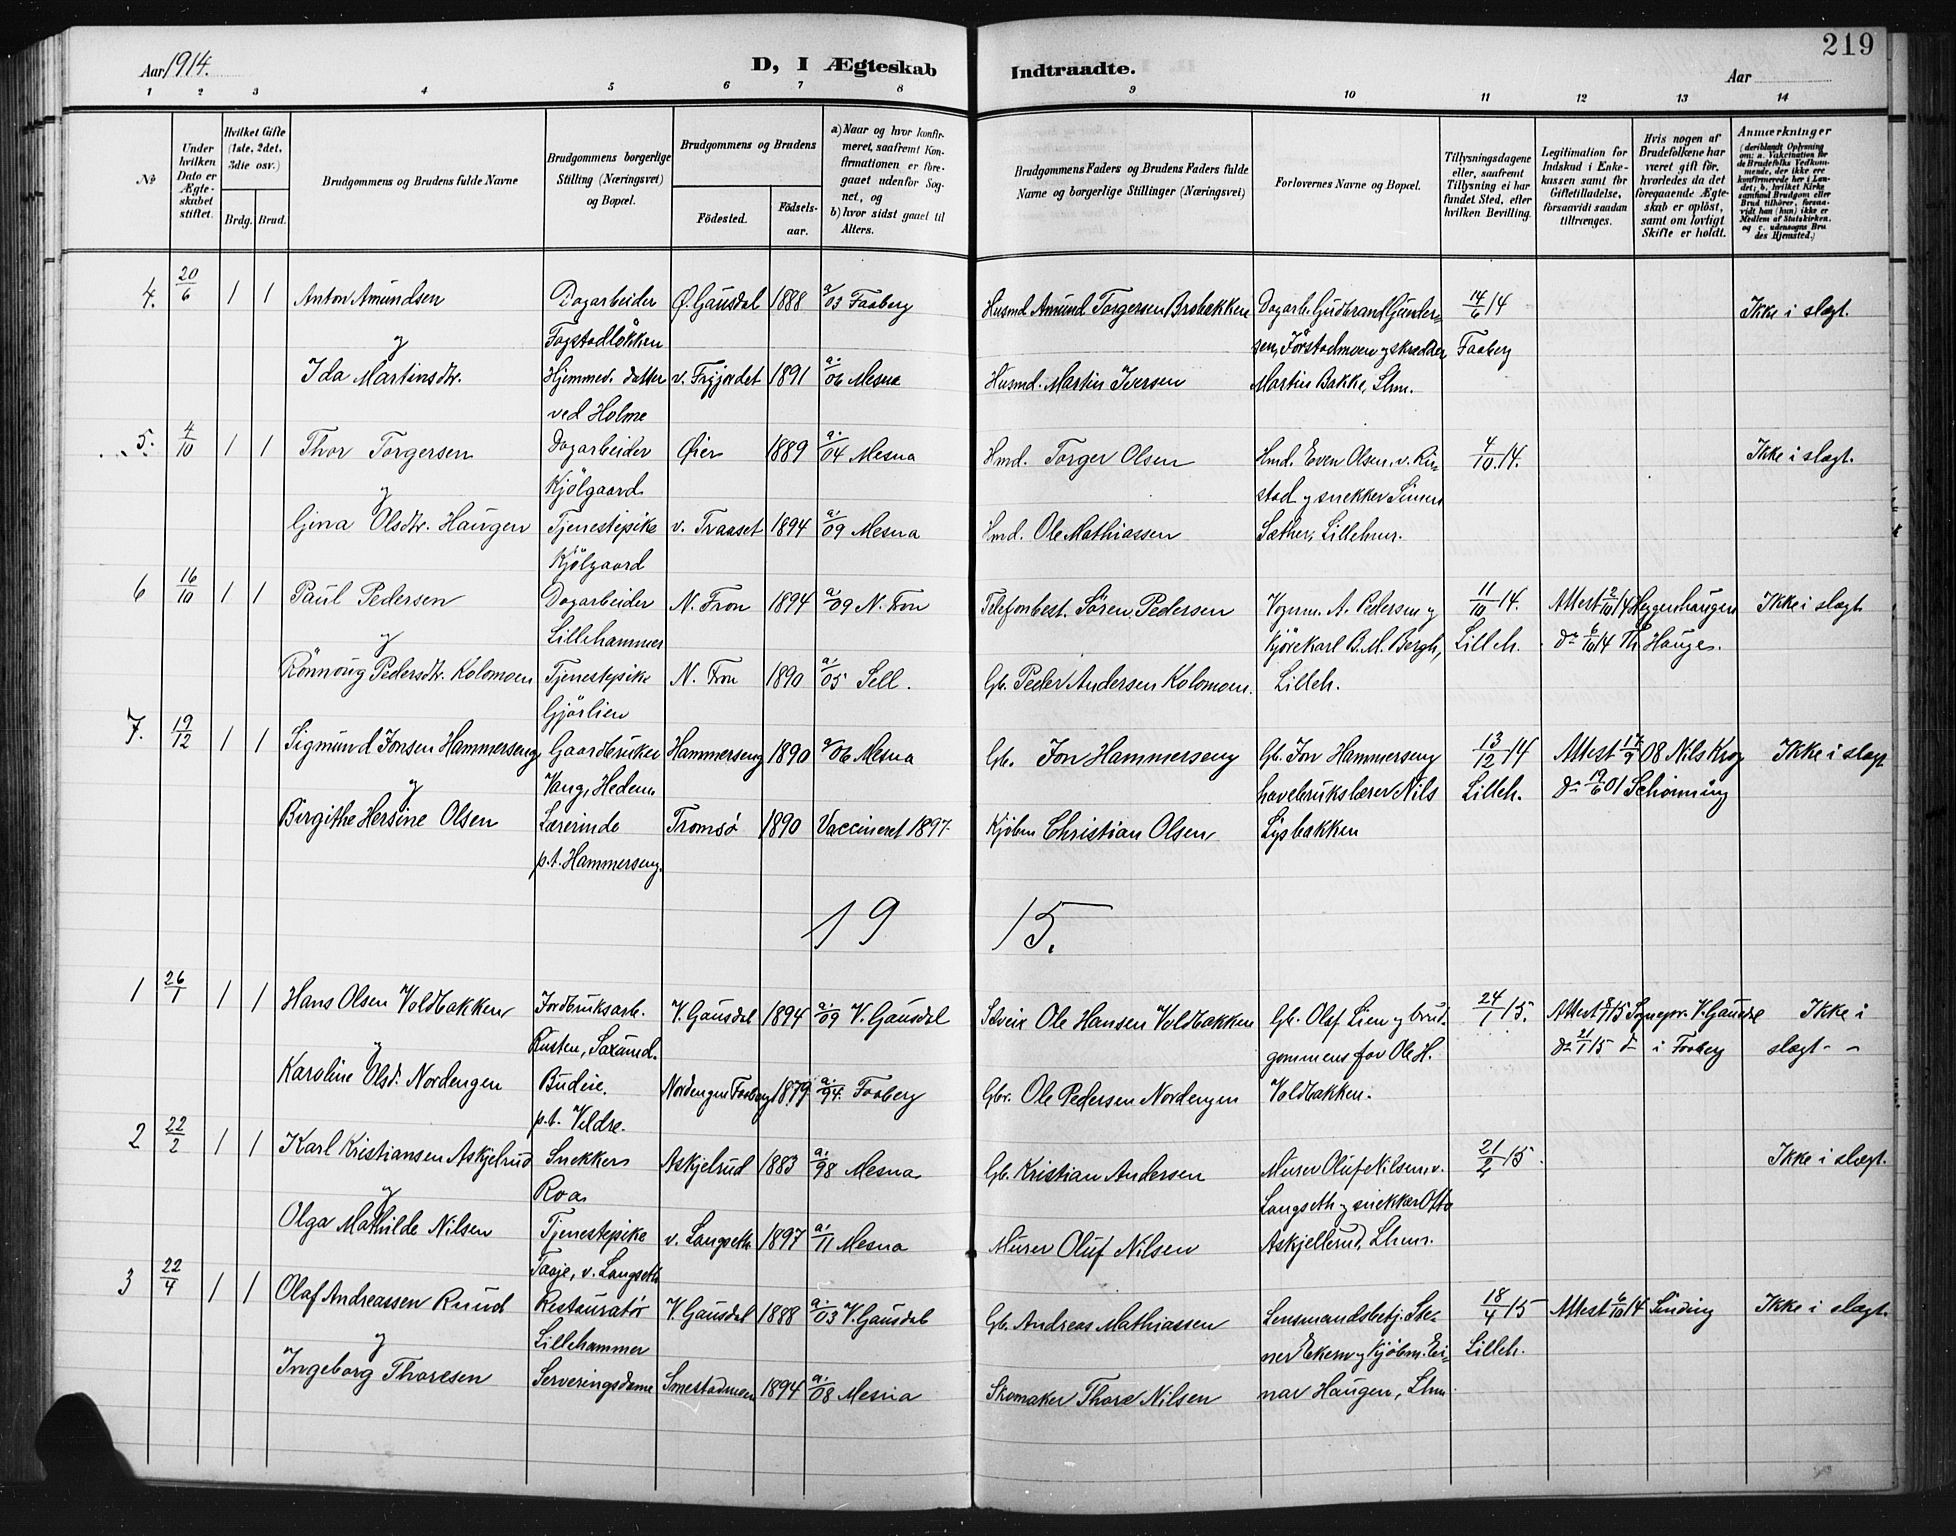 219
Aar 1914.
D, I Ægteskab Indtraadte.
Aar
1 2 3 4 5 6 7 8 9 10 11 12 13 14
No
Under hvilken Dato er Ægteskabet stiftet.
Hvilket Gifte (1ste, 2det, 3die osv.)
Brdg. Brud.
Brudgommens og Brudens fulde Navne
Brudgommens borgerlige Stilling (Næringsvei) og Bopæl.
Brudgommens og Brudens
Födested.
Födselsaar.
a) Naar og hvor konfirmeret, saafremt Konfirmationen er foregaaet udenfor Sognet, og
b) hvor sidst gaaet til Alters.
Brudgommens Faders og Brudens Faders fulde Navne og borgerlige Stillinger (Næringsvei)
Forlovernes Navne og Bopæl.
Tillysningsdagene eller, saafremt Tillysning ei har fundet Sted, efter hvilken Bevilling.
Legitimation for Indskud i Enkekassen samt for Giftetilladelse, forsaavidt saadan tiltrænges.
Hvis nogen af Brudefolkene har været gift för, hvorledes da det foregaaende Ægteskab er oplöst, samt om lovligt Skifte er holdt.
Anmærkninger
(deriblandt Oplysning om: a. Vakcination for de Brudefolks Vedkommende, der ikke ere konfirmerede her i Landet; b. hvilket Kirkesamfund Brudgom eller Brud tilhörer, forsaavidt han (hun) ikke er Medlem af Statskirken, og c. udensogns Brudes Hjemsted.)
4. 20/6 1 1 Anton Amundsen Dagarbeider Ø. Gausdal 1888 a/03 Faaberg Husmd Amund Torgersen Brobakken Dagarb. Gudbrand Gunder- 14/6 14 Ikke i slægt.
y Fagstadløkken sen, Förstadmoen y skrædder Faaberg
Ida Martinsdtr. Hjemmev. datter v. Frygjordet 1891 a./06 Mesna Husmd. Martin Iversen Martin Bakke, Lhm.
ved Holme
5. 4/10 1 1 Thor Torgersen Dagarbeider Øier 1889 a./04 Mesna Hmd. Torger Olsen Hmd. Even Olsen, v. Ri- 4/10 14. Ikke i slægt.
y Kjölgaard stad y snekker Simen
Gina Olsdtr. Haugen Tjenestepike v. Traaset 1894 a/09 Mesna Hmd. Ole Mathiassen Sæther, Lillehmr.
Kjölgaard
6 16/10 1 1 Paul Pedersen Dagarbeider N. Fron 1894 a/09 N. Fron Telefonbest. Sören Pedersen Vognm. A. Pedersen y 11/10 14. Attest 2/10 14 Heggenhaugen Ikke i slægt
y Lillehammer Kjörekarl B. M. Bergh, Lilleh. do 6/10 14 Th Hauge.
Rönnoug Pedersdtr. Kolomoen Tjenestepike N. Fron 1890 a./05 Sell. Gb. Peder Andersen Kolomoen. Lilleh.
Gjörlien
7. 19/12 1 1 Sigmund Jonsen Hammerseng Gaardbruker Hammerseng 1890 a/06 Mesna Gb. Jon Hammerseng Gb. Jon Hammerseng 13/12 14 Attest 17/9 08 Nils Krog Ikke i slægt
y Vang, Hedem. havebrukslærer Nils Lilleh. do 19/6 01 Schönning
Birgithe Hersine Olsen Lærerinde Tromsö 1890 Vaccineret 1897. Kjöbm Christian Olsen Lysbakken
p.t. Hammerseng.
19 15.
1 26/1 1 1 Hans Olsen Voldbakken Jordbruksarb. V. Gausdal 1894 a./09 V. Gausdal Sveis Ole Hansen Voldbakken Gb. Olaf Lien y brud- 24/1 15. Attest 15 Sognepr. V. Gausdal Ikke i
y Rusten, Saxumd. gommens far Ole H. do 21/1 15 do i Faaberg slægt
Karoline Olsd. Nordengen Budeie. Nordengen Faaberg 1879 a./94. Faaberg Gbr. Ole Pedersen Nordengen Voldbakken.
p.t. Veldre.
2 22/2 1 1 Karl Kristiansen Askjelrud Snekker Askjelrud 1883 a./98 Mesna Gb. Kristian Andersen Murer Oluf Nilsen v. 21/2 15. Ikke i slægt.
y Roa Langseth y snekker Otto
Olga Mathilde Nilsen Tjenestepike v. Langseth 1897 a./11 Mesna Murer Oluf Nilsen Askjellerud, Lhmr.
Taaje, v. Langseth
3 22/4 1 1 Olaf Andreassen Ruud Restauratör V. Gausdal 1888 a./03 V. Gausdal Gb. Andreas Mathiassen Lensmandsbetj. Ste- 18/4 15 Attest 6/10 14 Sinding Ikke i slægt.
y Lillehammer ner Ekern y Kjöbm. Ei- Lilleh.
Ingeborg Thoresen Serveringsdame Smestadmoen 1894 a./08 Mesna Skomaker Thore Nilsen nar Haugen, Lhm